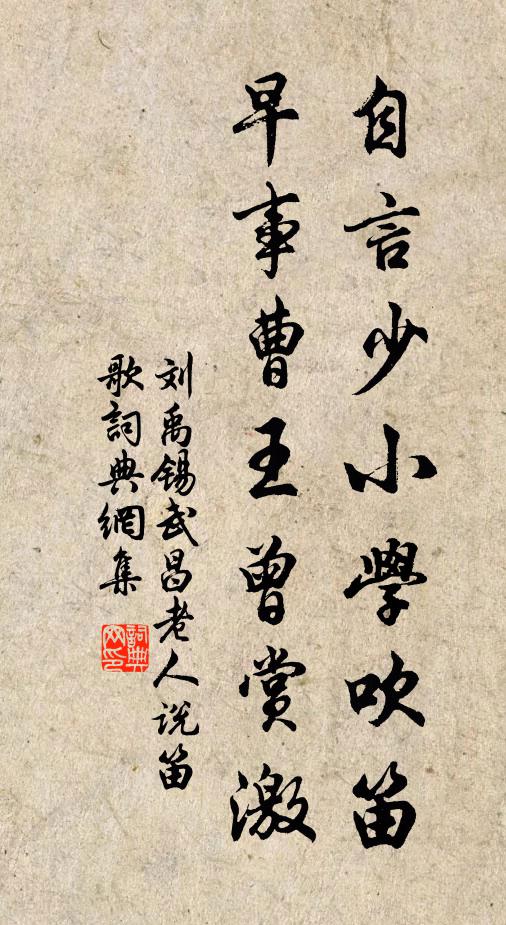 自言少小學吹笛
早事曹王曾賞激
刘禹锡武昌老人说笛
歌詞典網集
詞典网印